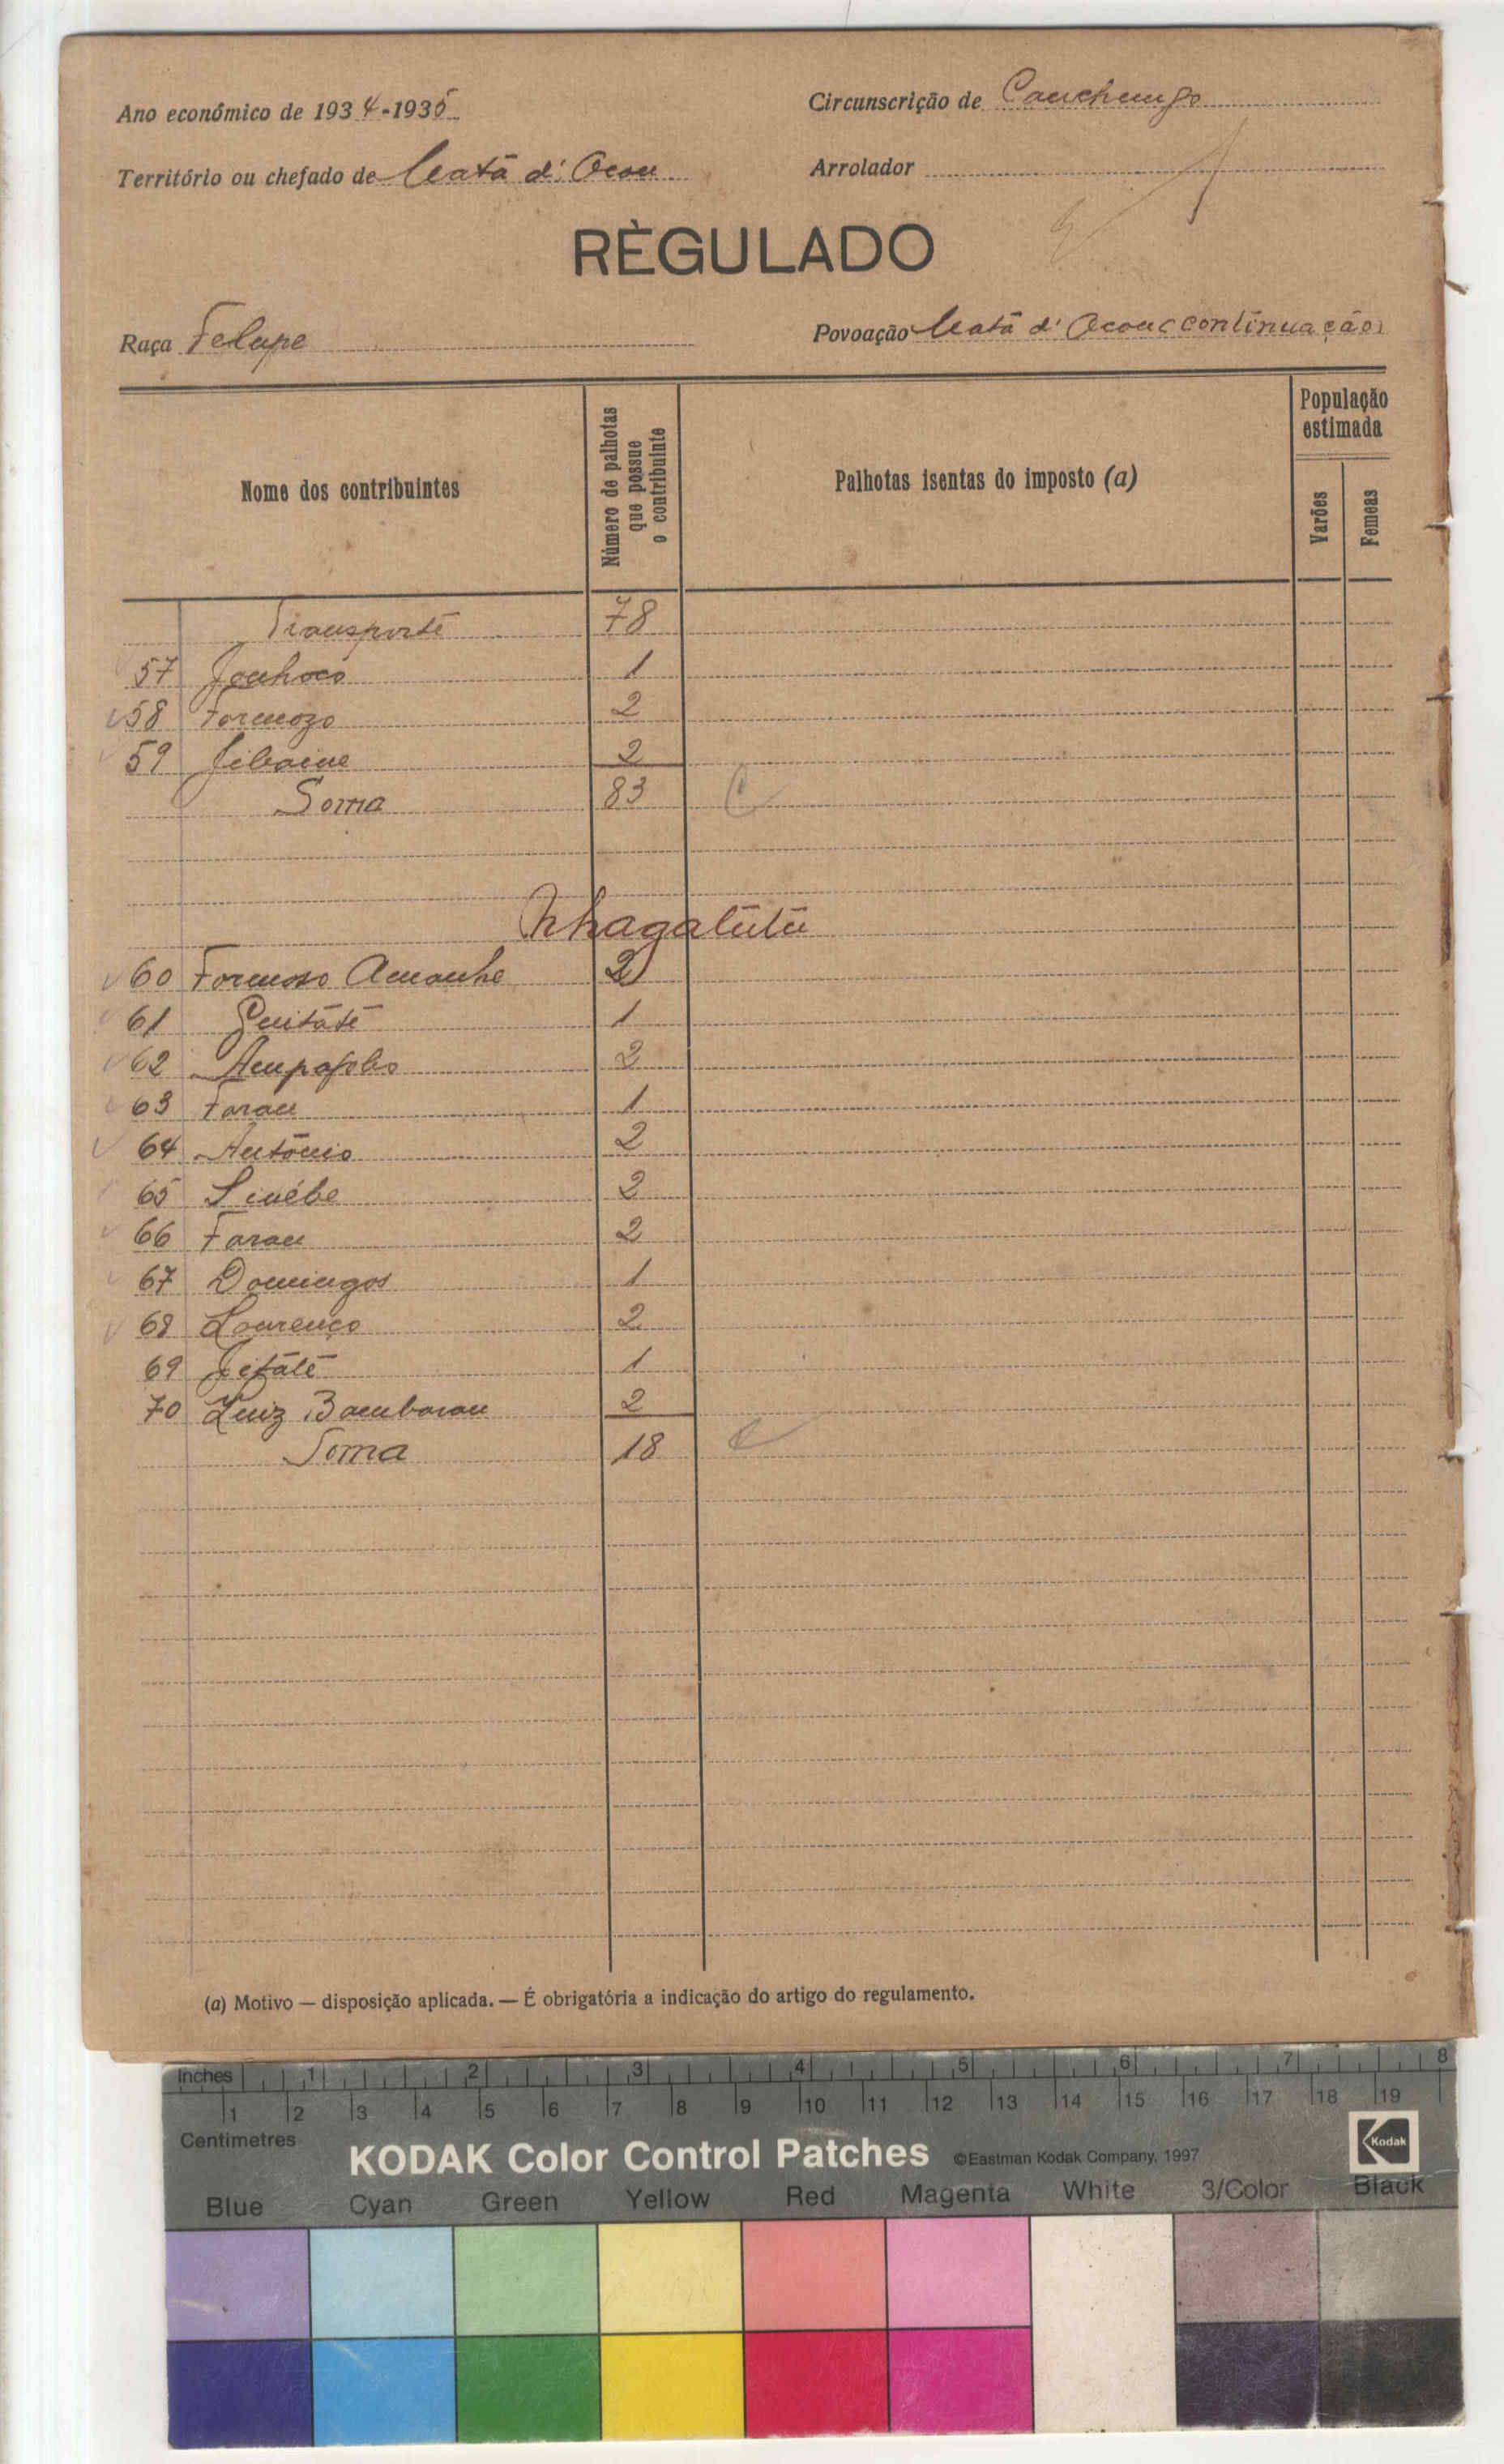 Ano económico de 1934-1935
Circunscrição de Canchungo
Território ou chefado de Catã d'
Arrolador
RÈGULADO
Raça Felupe
Povoação Catã d' (continuação)
Nome dos contribuintes
Número de palhotas que possue o contribuinte
Palhotas isentas do imposto (a)
População estimada
Varões
Femeas
Transporte 78
57 1
58 Formozo 2
59 2
Soma 83
Nhagalūtū
60 Formoso Amanhe 2
61 Quitáté 1
62 2
63 Farau 1
64 António 2
65 2
66 Farau 2
67 Domingos 1
68 Lourenço 2
69 1
70 Luiz Bambarau 2
Soma 18
(a) Motivo — disposição aplicada. — É obrigatória a indicação do artigo do regulamento.
Inches 1 2 3 4 5 6 7 8
1 2 3 4 5 6 7 8 9 10 11 12 13 14 15 16 17 18 19
Centimetres
KODAK Color Control Patches ©Eastman Kodak Company, 1997 Kodak
Blue Cyan Green Yellow Red Magenta White 3/Color Black